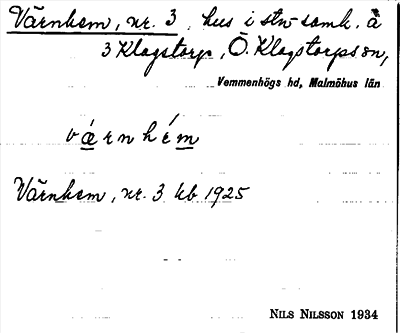 Värnhem, nr. 3, hus i stn-samh. å
3 Klagstorp, Ö. Klagstorps sn,
Vemmenhögs hd, Malmöhus län
vä́rnhém
Värnhem, nr. 3 kb 1925
NILS NILSSON 1934